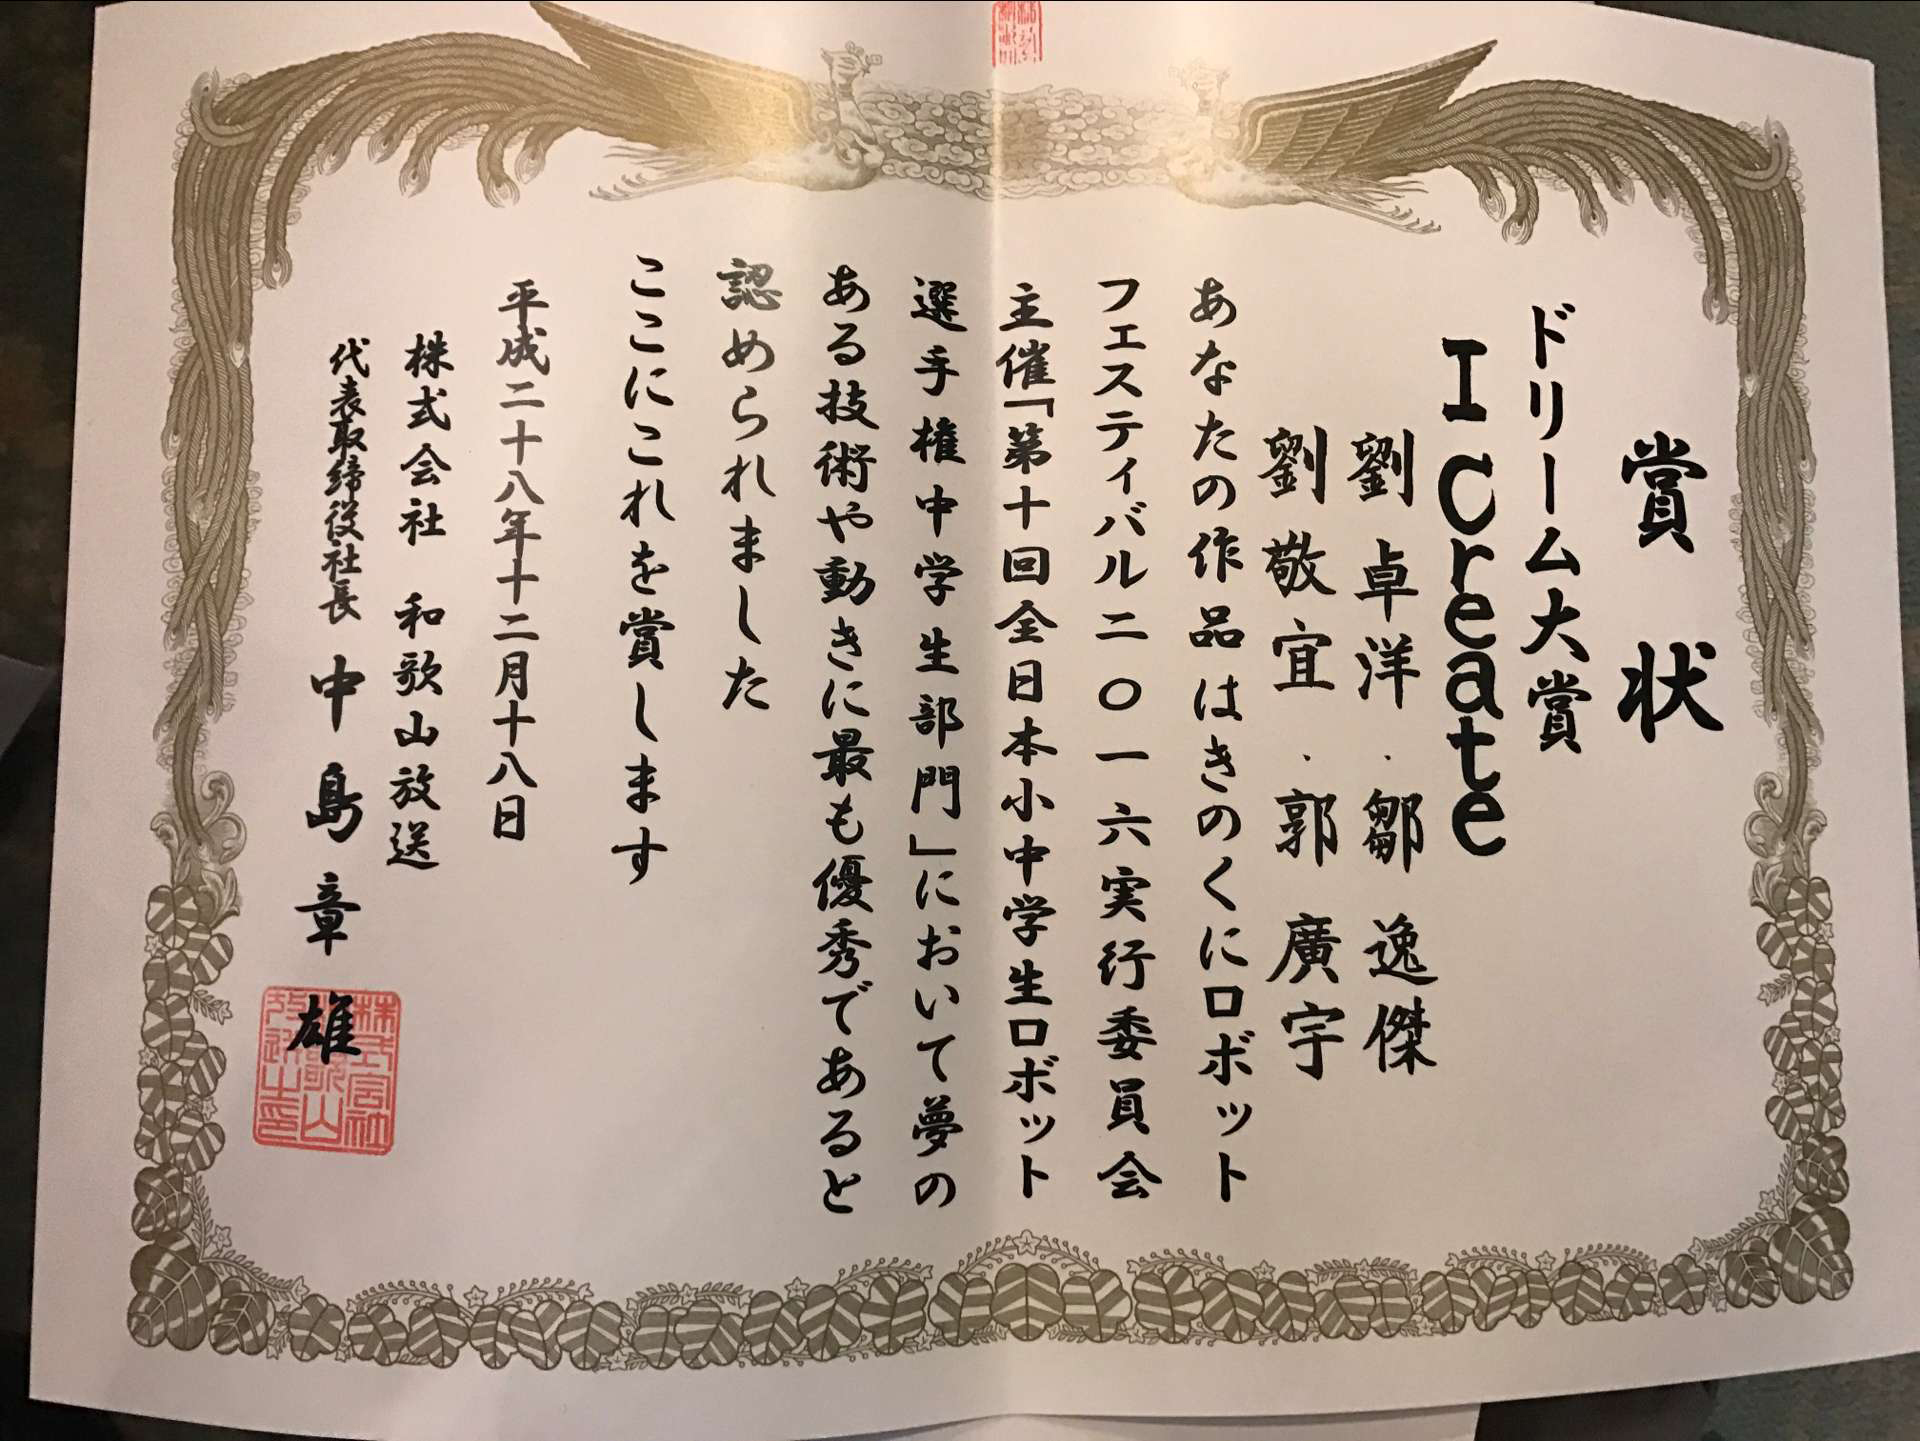 賞状
ドリーム大賞
I Create
劉卓洋・鄒逸傑
劉敬宜・郭廣宇
あなたの作品はきのくにロボット
フェスティバル二〇一六実行委員会
主催「第十回全日本小中学生ロボット
選手権中学生部門」において夢の
ある技術や動きに最も優秀であると
認められました
ここにこれを賞します
平成二十八年十二月十八日
株式会社 和歌山放送
代表取締役社長 中島章雄